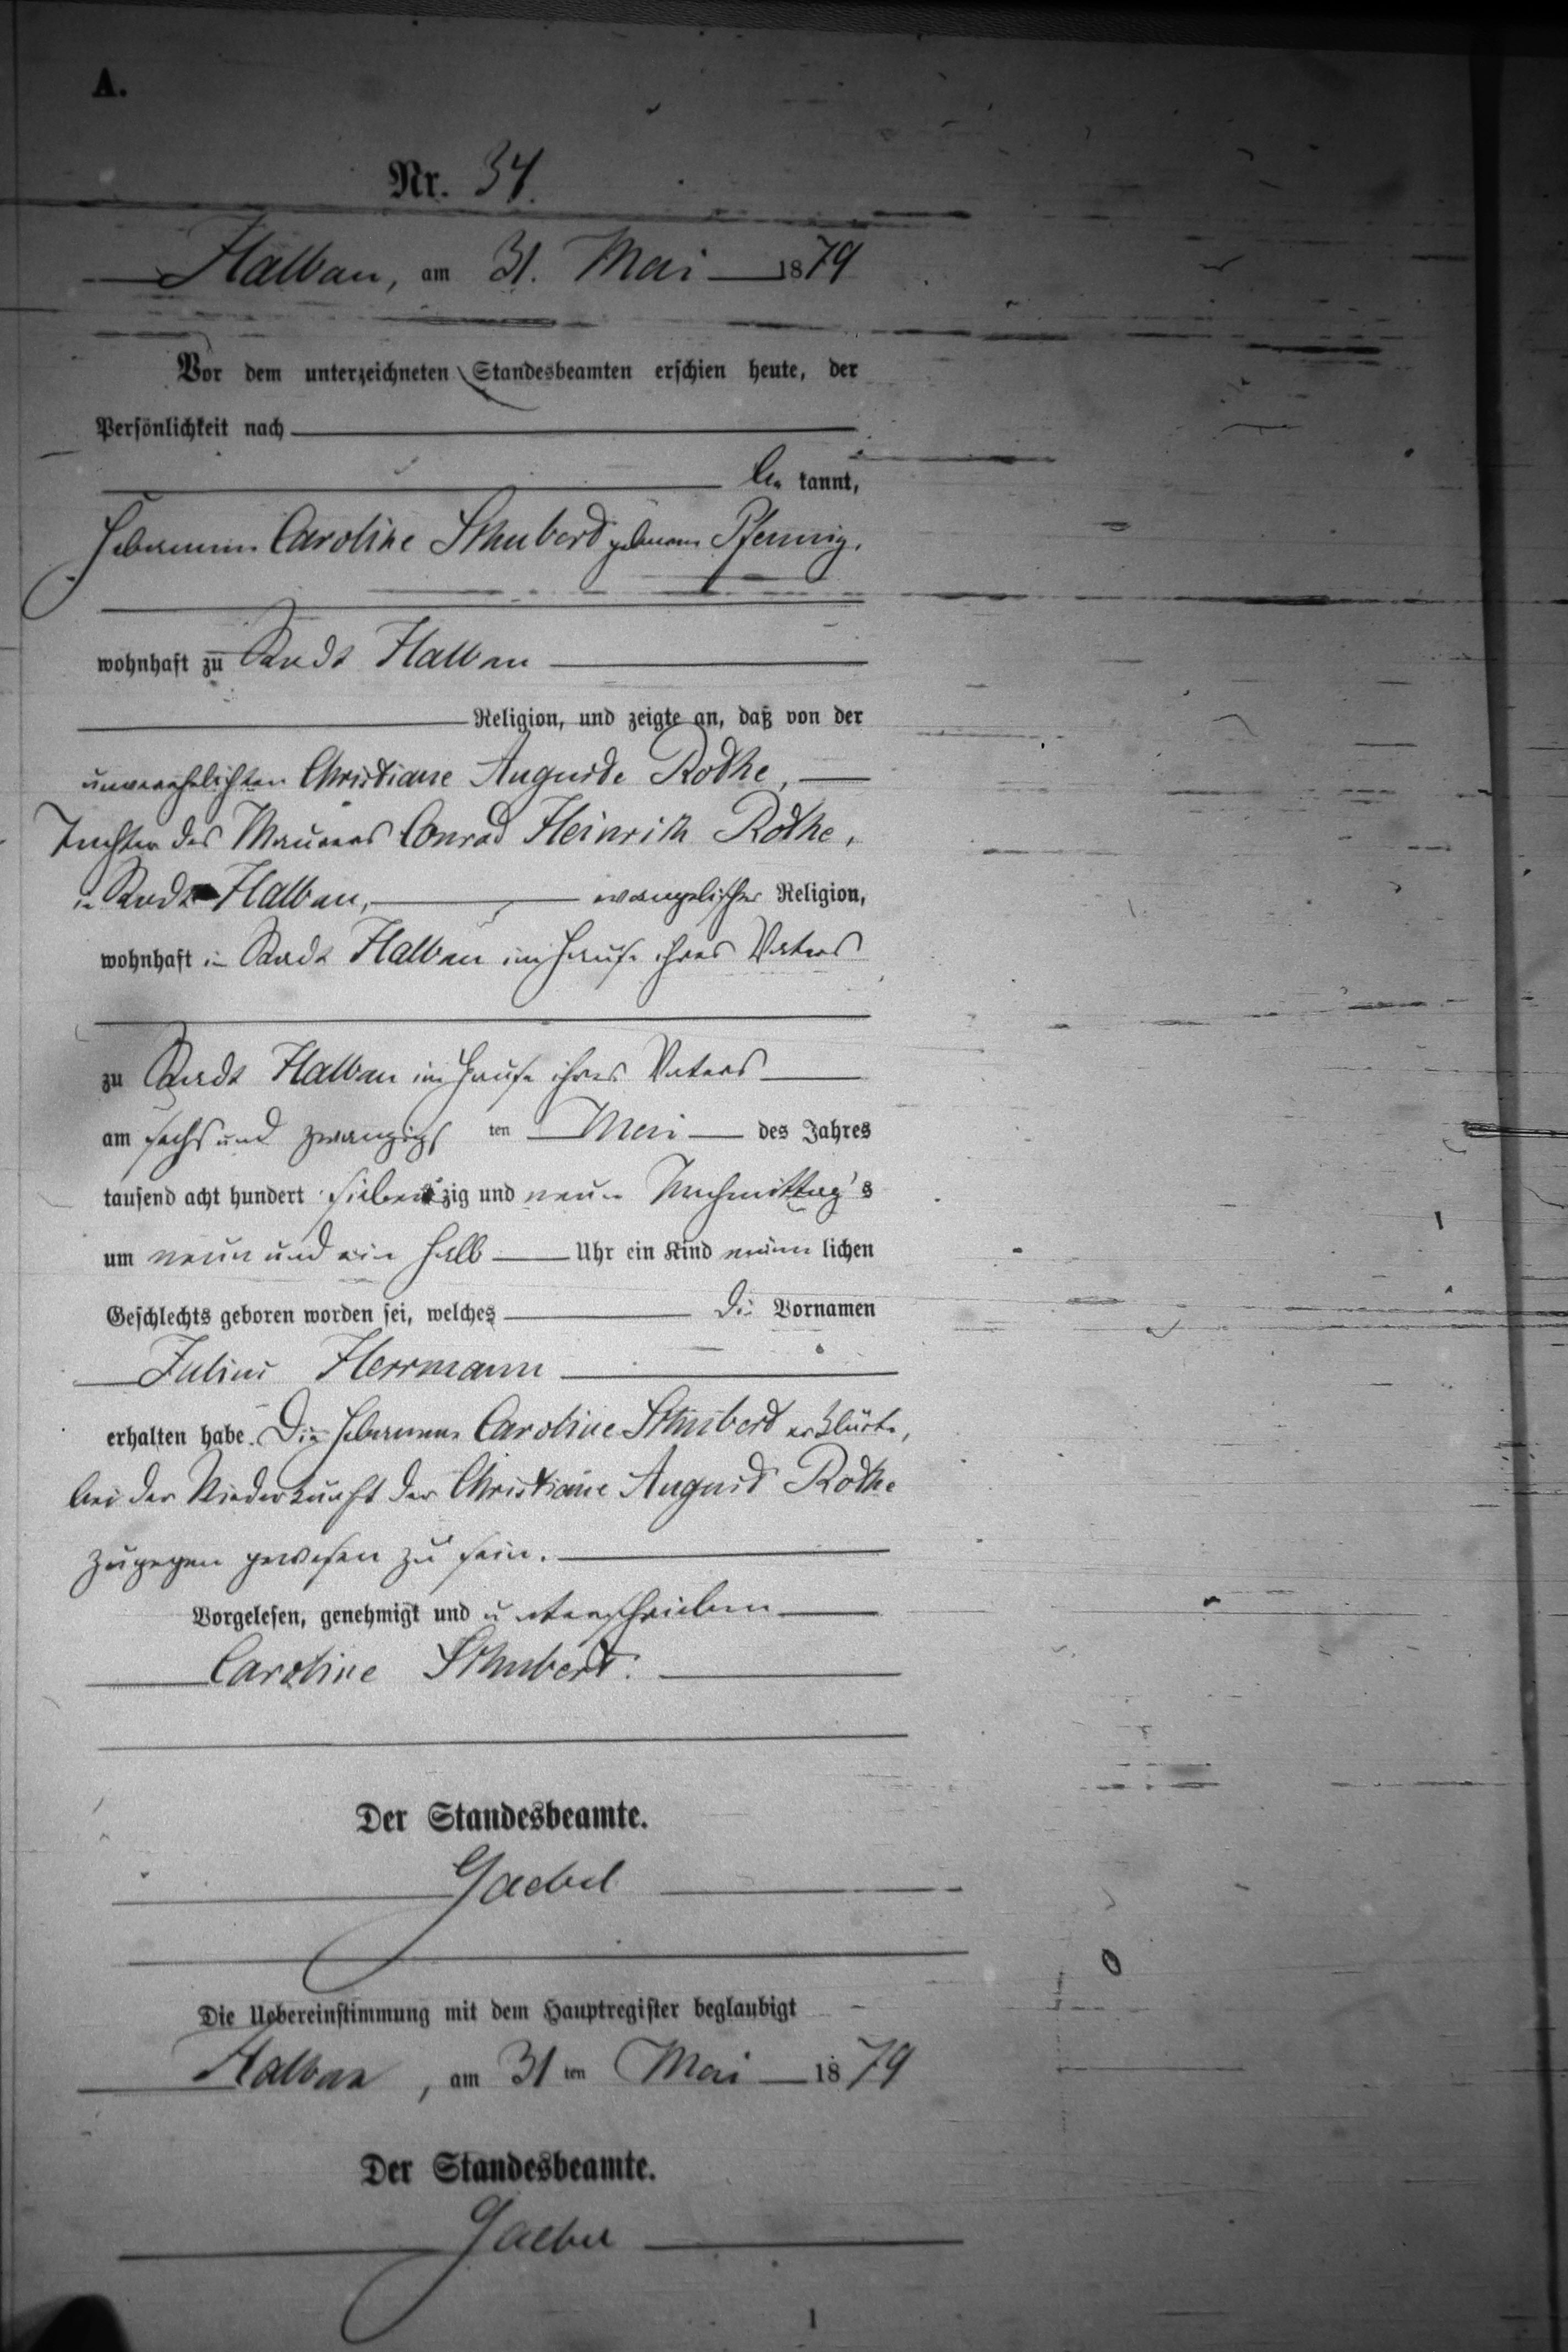 A.
Nr. 34.
Halbau, am 31. Mai 1879
Vor dem unterzeichneten Standesbeamten erschien heute, der
Persönlichkeit nach
be kannt,
Hebamme Caroline Schubert geborene Pfennig,
wohnhaft zu Stadt Halbau
Religion, und zeigte an, daß von der
unverehelichten Christiane Auguste Rothe,
Tochter des Maurers Conrad Heinrich Rothe,
in Stadt Halbau, evangelischer Religion,
wohnhaft in Stadt Halbau im Hause ihres Vaters
zu Stadt Halbau im Hause ihres Vaters
am sechs und zwanzigs ten Mai des Jahres
tausend acht hundert sieben zig und neun Nachmittag's
um neun und ein halb Uhr ein Kind männ lichen
Geschlechts geboren worden sei, welches die Vornamen
Julius Herrmann
erhalten habe. Die Hebamme Caroline Schubert erklärte,
bei der Niederkunft der Christiane August Rothe
zugegen gewesen zu sein.
Vorgelesen, genehmigt und unterschrieben
Caroline Schubert.
Der Standesbeamte.
Gaebel
Die Uebereinstimmung mit dem Hauptregister beglaubigt
Halbau, am 31 ten Mai 1879
Der Standesbeamte.
Gaebel
1